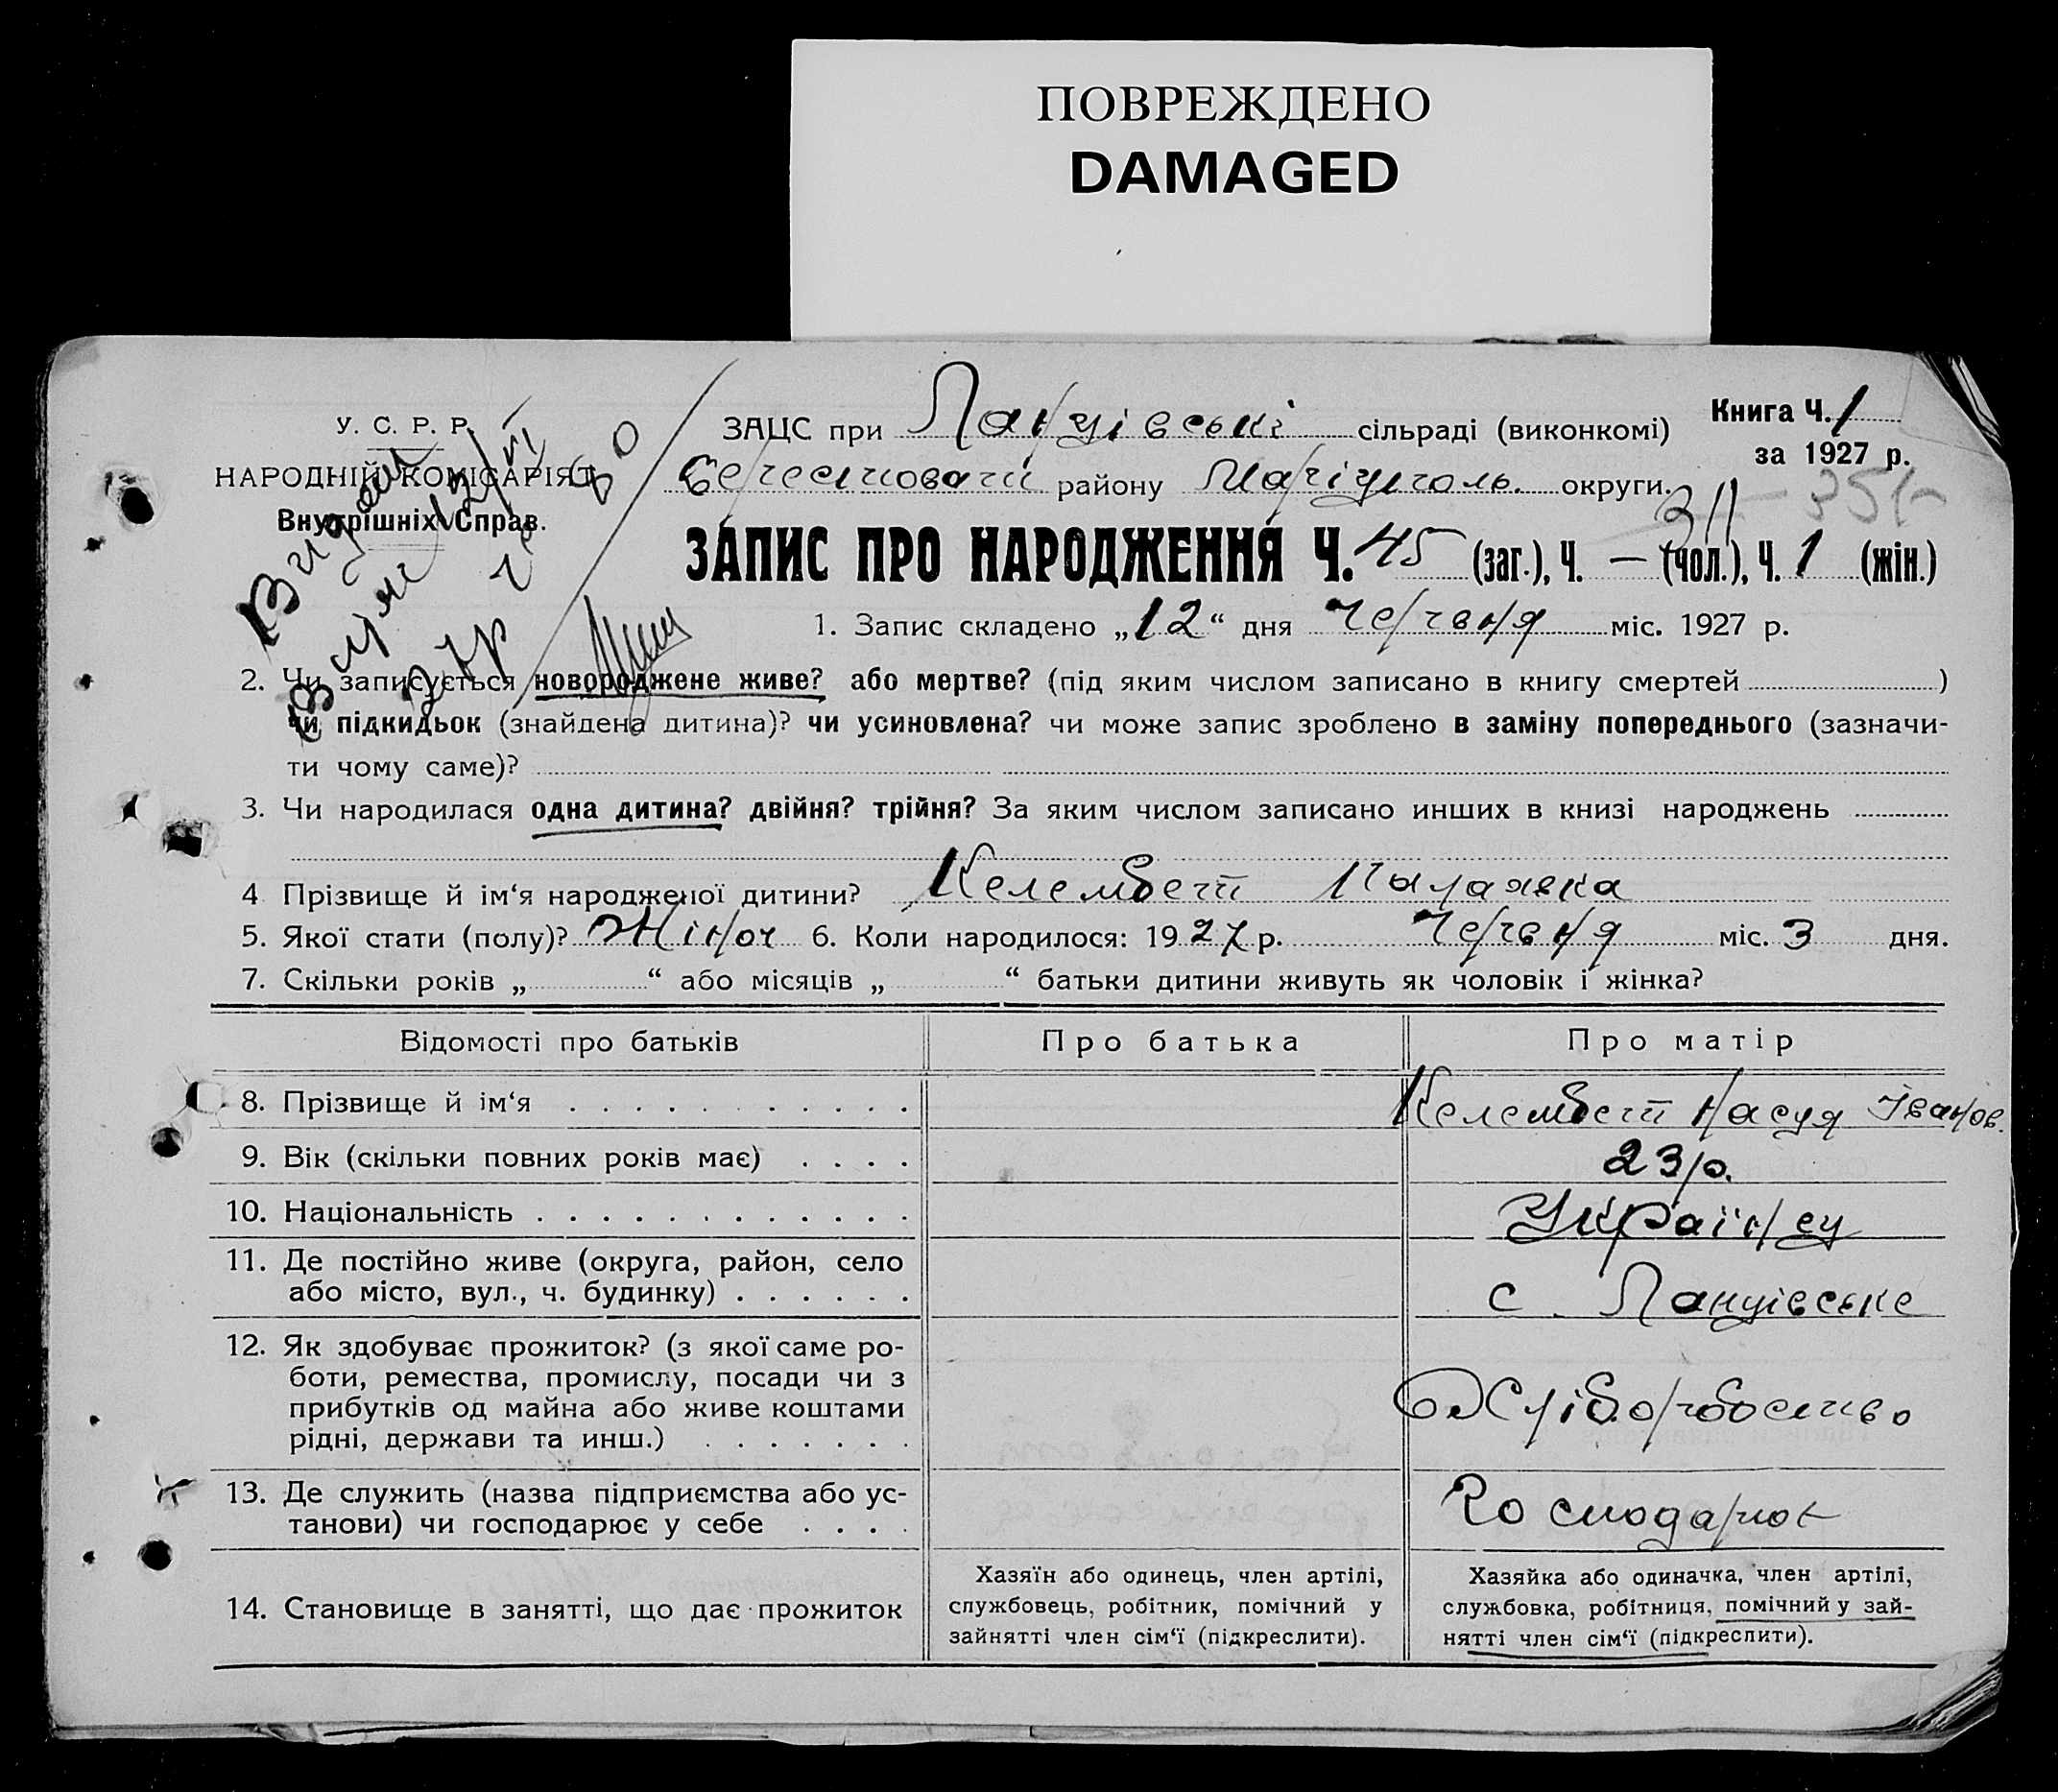 ПОВРЕЖДЕНО
DAMAGED
У. С. Р. Р.
НАРОДНІЙ КОМІСАРІЯТ
Внутрішніх Справ.
ЗАЦС при Ланцівські сільраді (виконкомі)
Книга Ч. 1
за 1927 р.
району Маріупіль. округи.
ЗАПИС ПРО НАРОДЖЕННЯ Ч. 45 (заг.), Ч. — (чол.), Ч. 1 (жін.)
1. Запис складено „12“ дня Червня міс. 1927 р.
2. Чи записується новороджене живе? або мертве? (під яким числом записано в книгу смертей )
чи підкидьок (знайдена дитина)? чи усиновлена? чи може запис зроблено в заміну попереднього (зазначи-
ти чому саме)?
3. Чи народилася одна дитина? двійня? трійня? За яким числом записано инших в книзі народжень
4 Прізвище й ім‘я народженої дитини? Келембет
5. Якої стати (полу)? Жіноч 6. Коли народилося: 1927 р. Червня міс. 3 дня.
7. Скільки років „ “ або місяців „ “ батьки дитини живуть як чоловік і жінка?
Відомості про батьків Про батька Про матір
8. Прізвище й ім‘я Келембет Іванов.
9. Вік (скільки повних років має) 23 р.
10. Національність Українец
11. Де постійно живе (округа, район, село
або місто, вул., ч. будинку) с. Ланцівське
12. Як здобуває прожиток? (з якої саме ро-
боти, ремества, промислу, посади чи з
прибутків од майна або живе коштами
рідні, держави та инш.) Хліборобство
13. Де служить (назва підприємства або ус-
танови) чи господарює у себе Господарює
14. Становище в занятті, що дає прожиток
Хазяїн або одинець, член артілі,
службовець, робітник, помічний у
зайнятті член сім‘ї (підкреслити).
Хазяйка або одиначка, член артілі,
службовка, робітниця, помічний у зай-
нятті член сім‘ї (підкреслити).